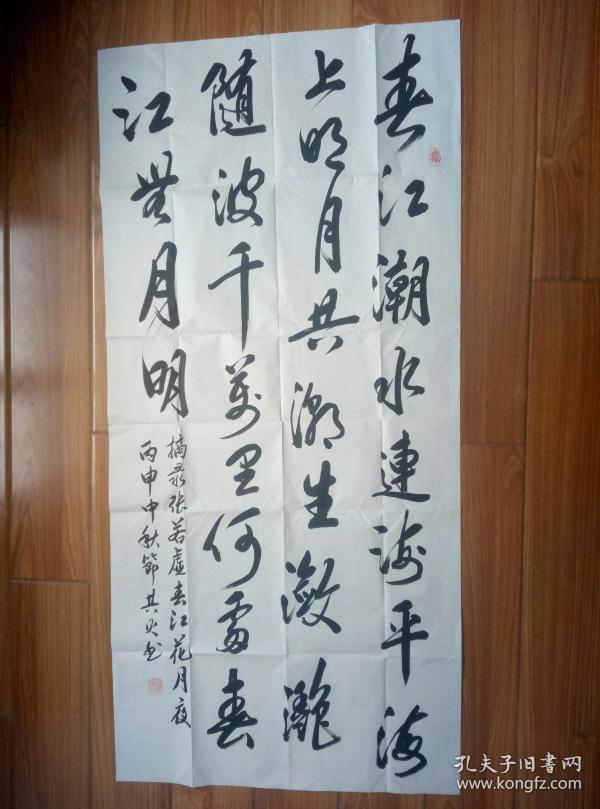 春江潮水連海平海
上明月共潮生瀲灧
隨波千萬里何處春
江無月明
摘录张若虛春江花月夜
丙申中秋節书
孔夫子旧书网
www.kongfz.com